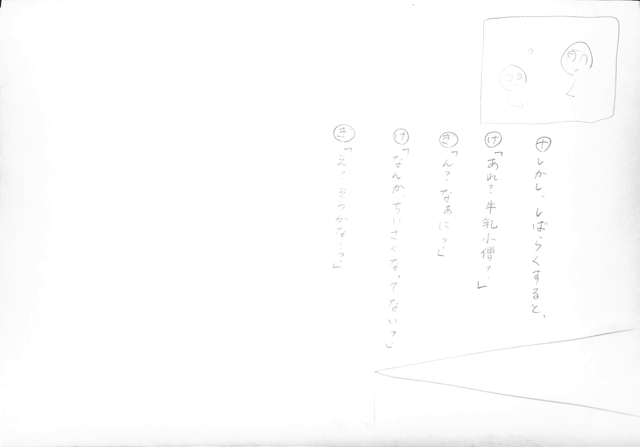 ナ しかし、しばらくすると、
け「あれ？牛乳小僧？」
ぎ「ん？なぁに？」
け「なんか、ちいさくなってない？」
ぎ「え？そうかな…？」